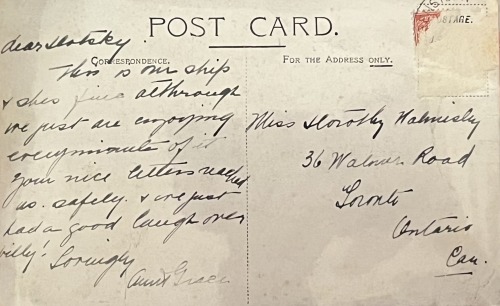 POST CARD.
CORRESPONDENCE.
FOR THE ADDRESS ONLY.
dear
This is our ship
& shes fine althrough
we just are enjoying
everyminute of it
your nice letters reached
us. safely. & we just
had a good laugh over
billy!
Lovingly
Aunt Grace
Miss Dorothy
36 Walmer Road
Toronto
Ontario
Can.